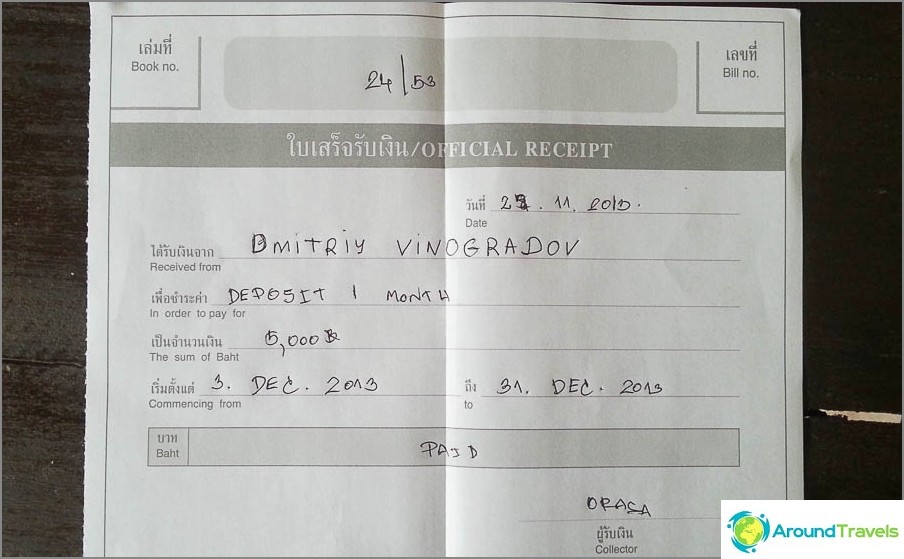 เล่มที่
Book no.
24/53
เลขที่
Bill no.
ใบเสร็จรับเงิน/OFFICIAL RECEIPT
วันที่ . 11. 2013.
Date
ได้รับเงินจาก DMITRIY VINOGRADOV
Received from
เพื่อชำระค่า DEPOSIT 1 MONTH
In order to pay for
เป็นจำนวนเงิน 5,000฿
The sum of Baht
เริ่มตั้งแต่ 3. DEC. 2013 ถึง 31. DEC. 2013
Commencing from to
บาท PAID
Baht
ORASA
ผู้รับเงิน
Collector
AroundTravels